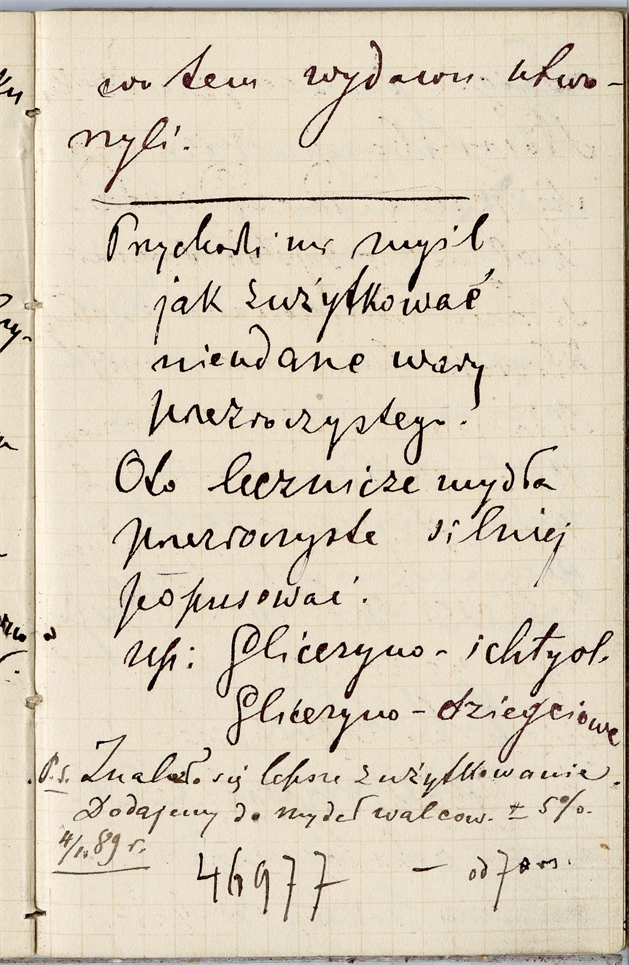 w tem wydawn. utwo-
rzyli.
Przychodzi mi myśl
jak zużytkować
nieudane wary
przezroczystego!
Oto lecznicze mydła
przezroczyste silniej
popusować.
np: Gliceryno - ichtyol.
Gliceryno - dziegciowe
P.s. Znalazło się lepsze zużytkowanie.
Dodajemy do mydeł walcow. ± 5%.
89 r.
46977 — od 7